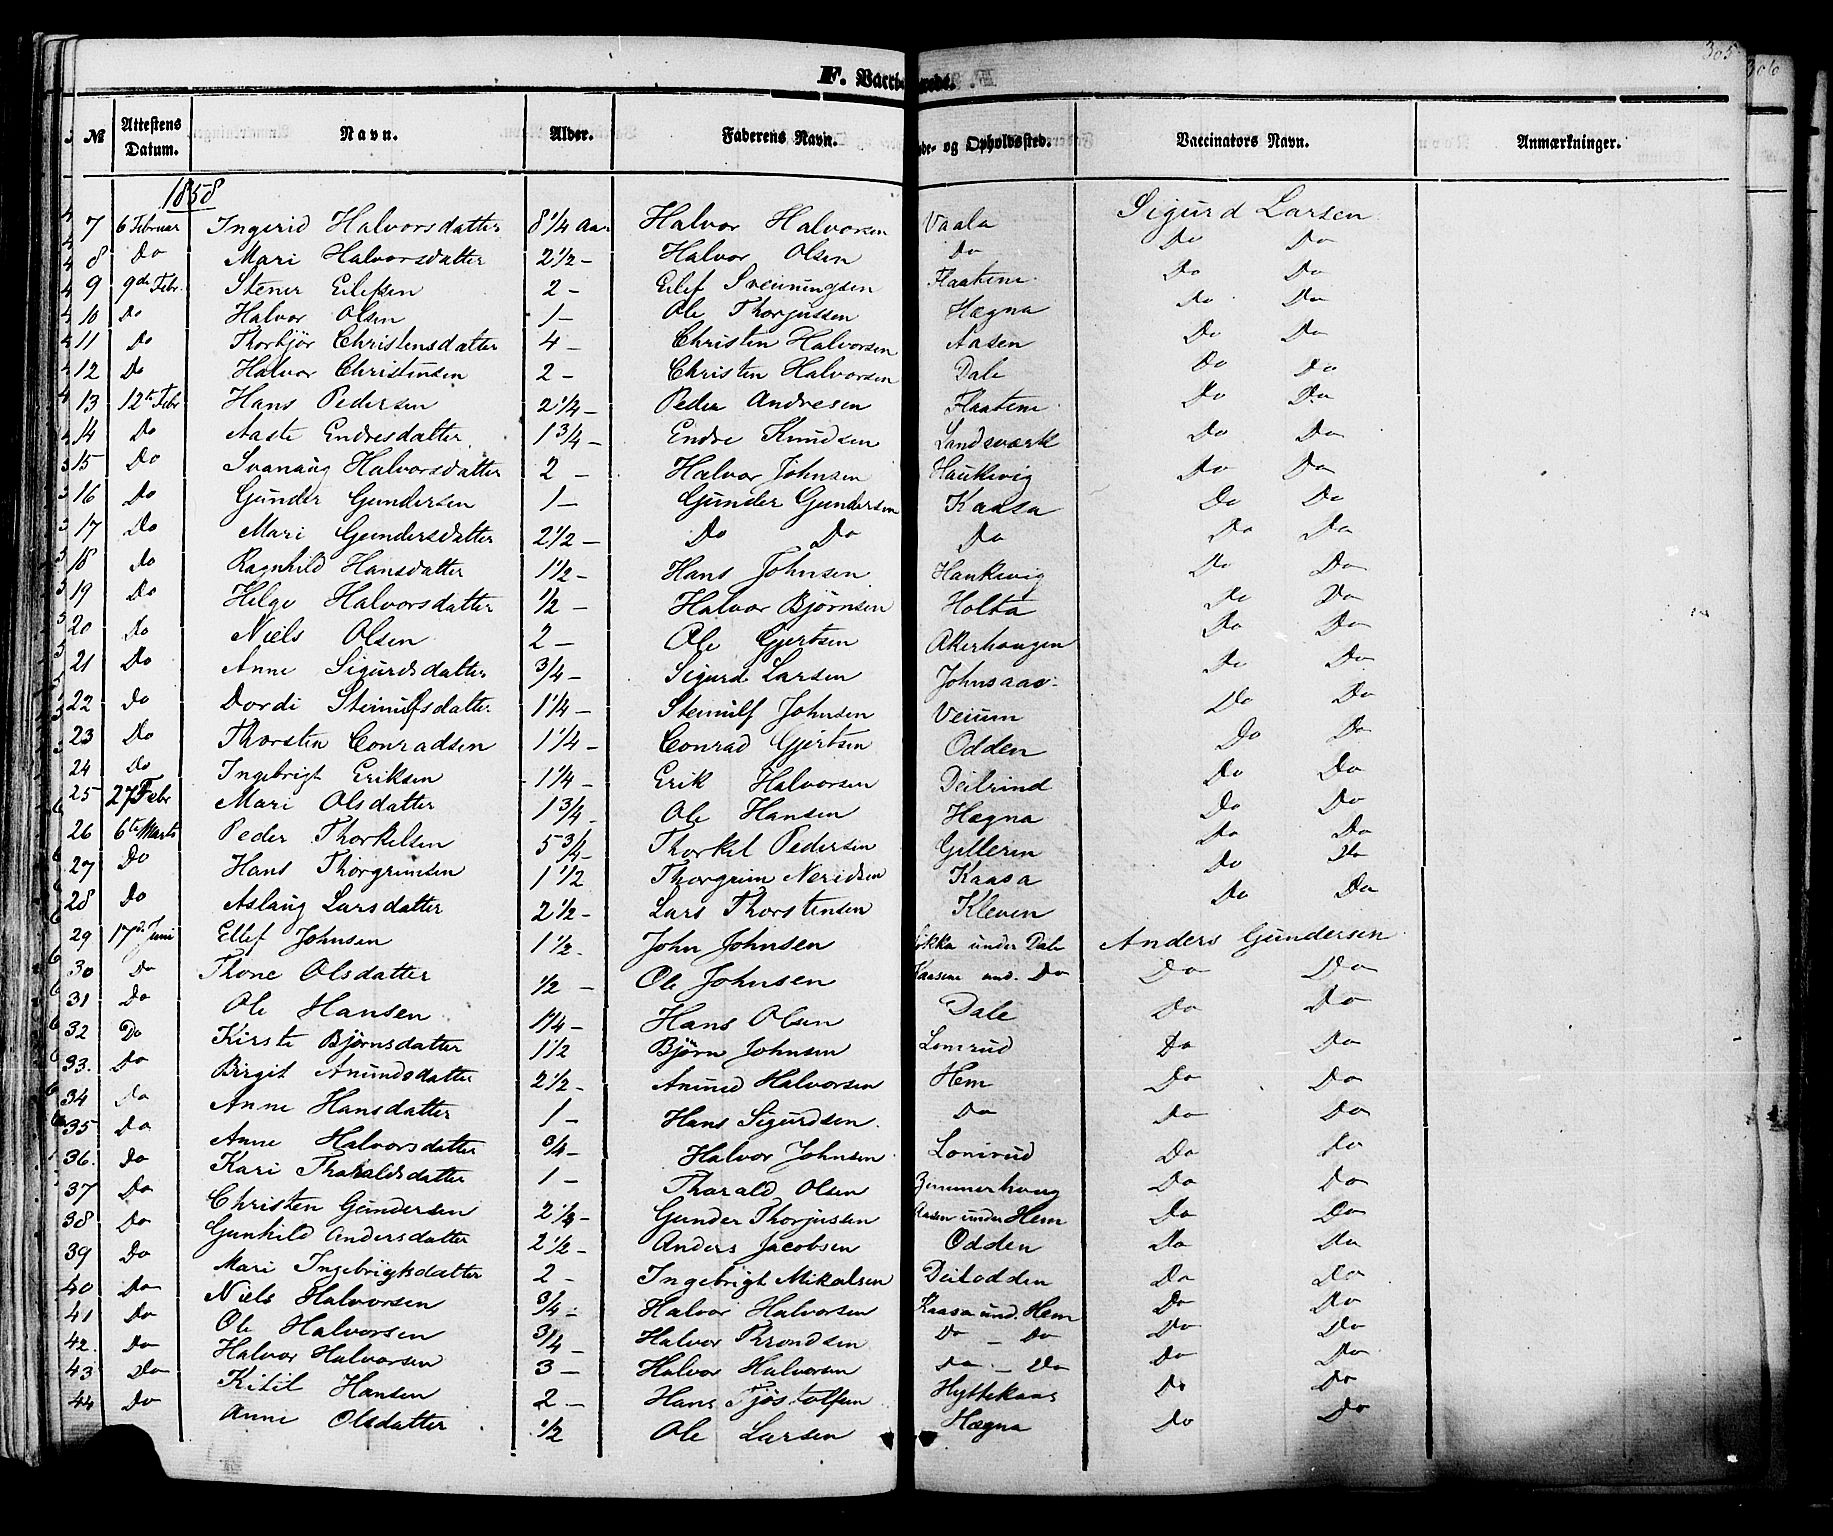 305
306
F. Vaccinerede.
№ Attestens Datum. Navn. Alder. Faderens Navn. Føde- og Opholdssted. Vaccinators Navn. Anmærkninger.
1858
7 6 Februar Ingerid Halvorsdatter 8 1/4 Aa. Halvor Halvorsen Vaala Sigurd Larsen
8 Do Mari Halvorsdatter 2 1/2 - Halvor Olsen Do Do Do
9 9de Febr. Stener Eilefsen 2 - Eilef Sveinungsen Flaatene Do Do
10 Do Halvor Olsen 1 - Ole Thorjussen Hægna Do Do
11 Do Thorbjør Christensdatter 4 - Christen Halvorsen Aasen Do Do
12 Do Halvor Christensen 2 - Christen Halvorsen Dale Do Do
13 12te Febr Hans Pedersen 2 1/4 - Peder Andresen Flaatene Do Do
14 Do Aaste Endresdatter 1 3/4 - Endre Knudsen Landsværk Do Do
15 Do Svanaug Halvorsdatter 2 - Halvor Johnsen Haukvig Do Do
16 Do Gunder Gundersen 1 - Gunder Gundersen Kaasa Do Do
17 Do Mari Gundersdatter 2 1/2 - Do Do Do Do Do
18 Do Ragnhild Hansdatter 1 1/2 - Hans Johnsen Haukvig Do Do
19 Do Helge Halvorsdatter 1/2 - Halvor Bjørnsen Holta Do Do
20 Do Niels Olsen 2 - Ole Gjertsen Akerhaugen Do Do
21 Do Anne Sigurdsdatter 3/4 - Sigurd Larsen Johnsaas Do Do
22 Do Dordi Steinulfsdatter 1 1/4 - Steinulf Johnsen Veium Do Do
23 Do Thorsten Conradsen 1 1/4 - Conrad Gjertsen Odden Do Do
24 Do Ingebrigt Eriksen 1 1/4 - Erik Halvorsen Deilrind Do Do
25 27 Febr Mari Olsdatter 1 3/4 - Ole Hansen Hægna Do Do
26 6te Marts Peder Thorkelsen 5 3/4 - Thorkel Pedersen Gilleren Do Do
27 Do Hans Thorgrimsen 1 1/2 Thorgrim Neridsen Kaasa Do Do
28 Do Aslaug Larsdatter 2 1/2 - Lars Thorstensen Kleven Do Do
29 17de Juni Ellef Johnsen 1 1/2. John Johnsen Løkka under Dale Anders Gundersen
30 Do Thone Olsdatter 1/2 - Ole Johnsen Kaasene und. Do Do Do
31 Do Ole Hansen 1 1/4 - Hans Olsen Dale Do Do
32 Do Kirste Bjørnsdatter 1 1/2 Bjørn Johnsen Lonrud Do Do
33. Do Birgit Anundsdatter 2 1/2 - Anund Halvorsen Hem Do Do
34 Do Anne Hansdatter 1 - Hans Sigurdsen Do Do Do
35 Do Anne Halvorsdatter 3/4 - Halvor Johnsen Lonrud Do Do
36. Do Kari Tharaldsdatter 1 - Tharald Olsen Do Do
37 Do Christen Gundersen 2 1/4 - Gunder Thorjussen Aasen under Hem Do Do
38 Do Gunhild Andersdatter 2 1/2 - Anders Jacobsen Odden Do Do
39 Do Mari Ingebrigtsdatter 2 - Ingebrigt Mikalsen Deilodden Do Do
40 Do Niels Halvorsen 3/4 - Halvor Halvorsen Kaasa und. Hem Do Do
41 Do Ole Halvorsen 3/4 - Halvor Throndsen Do - Do Do Do
42. Do Halvor Halvorsen 3 - Halvor Halvorsen Do - Do Do Do
43 Do Kitil Hansen 2 - Hans Tjøstolfsen Hyttekaas Do Do
44 Do Anne Olsdatter 1/2 Ole Larsen Hægna Do Do